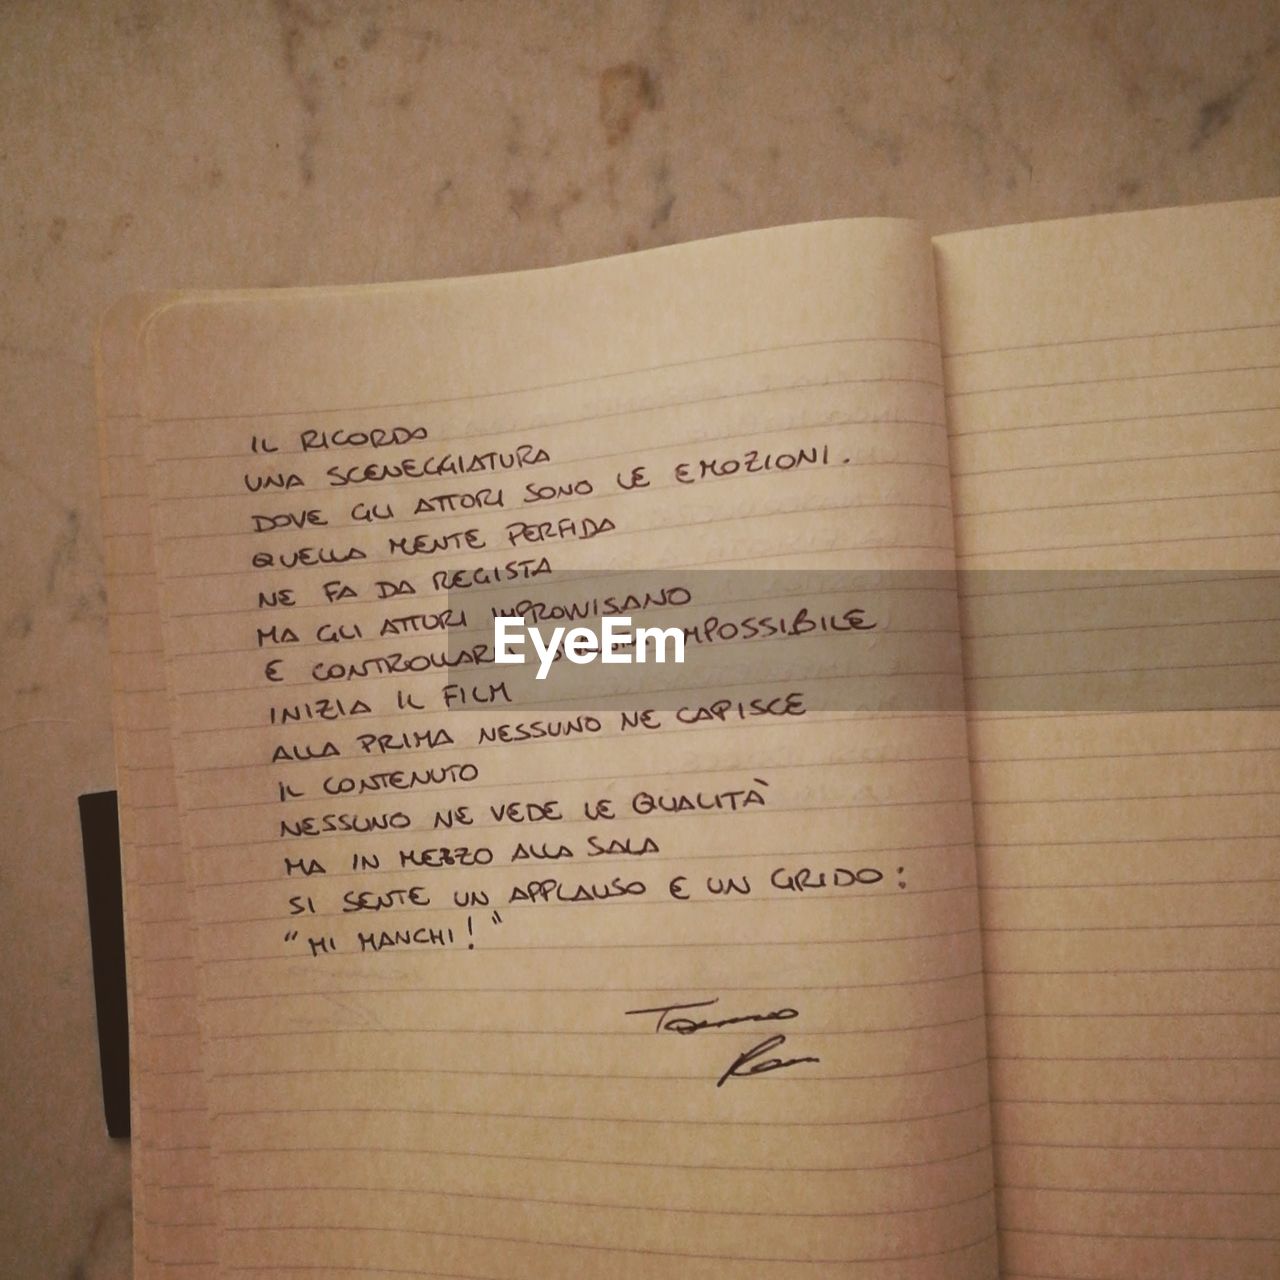 IL RICORDO
UNA SCENEGGIATURA
DOVE GLI ATTORI SONO LE EMOZIONI.
QUELLA MENTE PERFIDA
NE FA DA REGISTA
MA GLI ATTORI IMPROVVISANO
E CONTROLLARLI IMPOSSIBILE
EyeEm
INIZIA IL FILM
ALLA PRIMA NESSUNO NE CAPISCE
IL CONTENUTO
NESSUNO NE VEDE LE QUALITÀ
MA IN MEZZO ALLA SALA
SI SENTE UN APPLAUSO E UN GRIDO:
"MI MANCHI!"